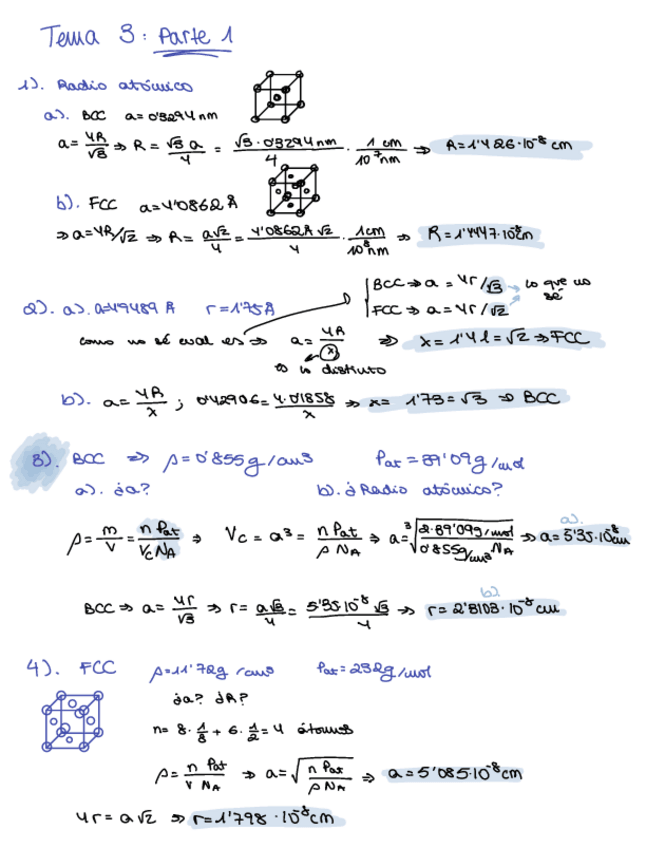 Tema 3: Parte 1
1). Radio atómico
a). BCC a=0'3294nm
a= 4R/√3 ⇒ R = √3 a/4 = √3·0'3294nm/4 · 1 cm/10⁷nm ⇒ R=1'426·10⁻⁸ cm
b). FCC a=4'0862Å
⇒ a=4R/√2 ⇒ R= a√2/4 = 4'0862Å √2/4 · 1cm/10⁸nm ⇒ R=1'4447·10⁻⁸cm
BCC ⇒ a = 4r/√3 → lo que no sé
2). a). a=4'9489 Å r=1'75Å
FCC ⇒ a=4r/√2
como no sé cual es ⇒ a= 4R/x ⇒ x=1'41=√2 ⇒ FCC
↳ lo distinto
b). a= 4R/x ; 0'42906= 4·0'1858/x ⇒ x= 1'73=√3 ⇒ BCC
3). BCC ⇒ ρ=0'855g/cm3 Pat=39'09g/mol
a). ¿a? b). ¿Radio atómico?
ρ= m/V = n Pat/Vc NA ⇒ Vc = a³ = n Pat/ρ NA ⇒ a= ³√(2·39'09g/mol / 0'855g/cm³ NA) ⇒ a). a=5'35·10⁻⁸cm
BCC ⇒ a= 4r/√3 ⇒ r= a√3/4 = 5'35·10⁻⁸ √3/4 ⇒ b) r=2'3103·10⁻⁸ cm
4). FCC ρ=11'72g/cm3 Pat=232g/mol
¿a? ¿R?
n= 8·1/8 + 6·1/2 = 4 átomos
ρ= n Pat/V NA ⇒ a=√(n Pat/ρ NA) ⇒ a=5'085·10⁻⁸cm
4r=a√2 ⇒ r=1'798·10⁻⁸cm